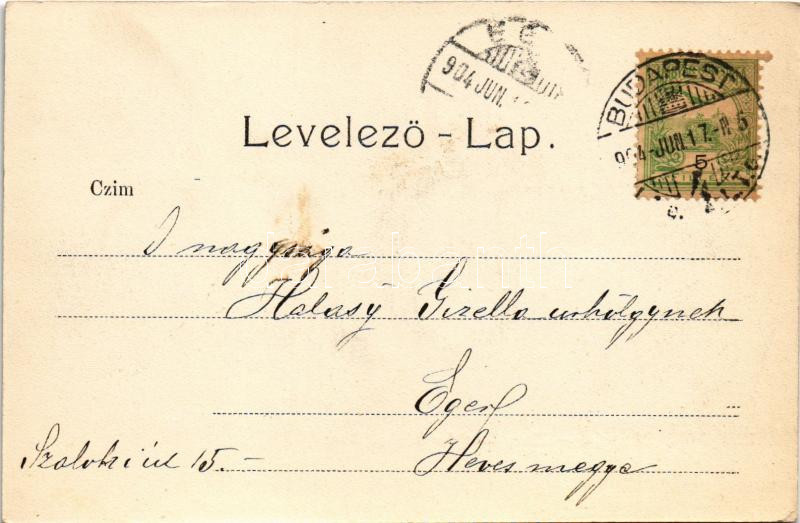 904 JUN.
BUDAPEST
904-JUN.17.-N 5
5
Levelező - Lap.
Czim
Ő nagysága
Halasy Gizella urhölgynek
Eger
Szaloki út 15.-
Heves megye